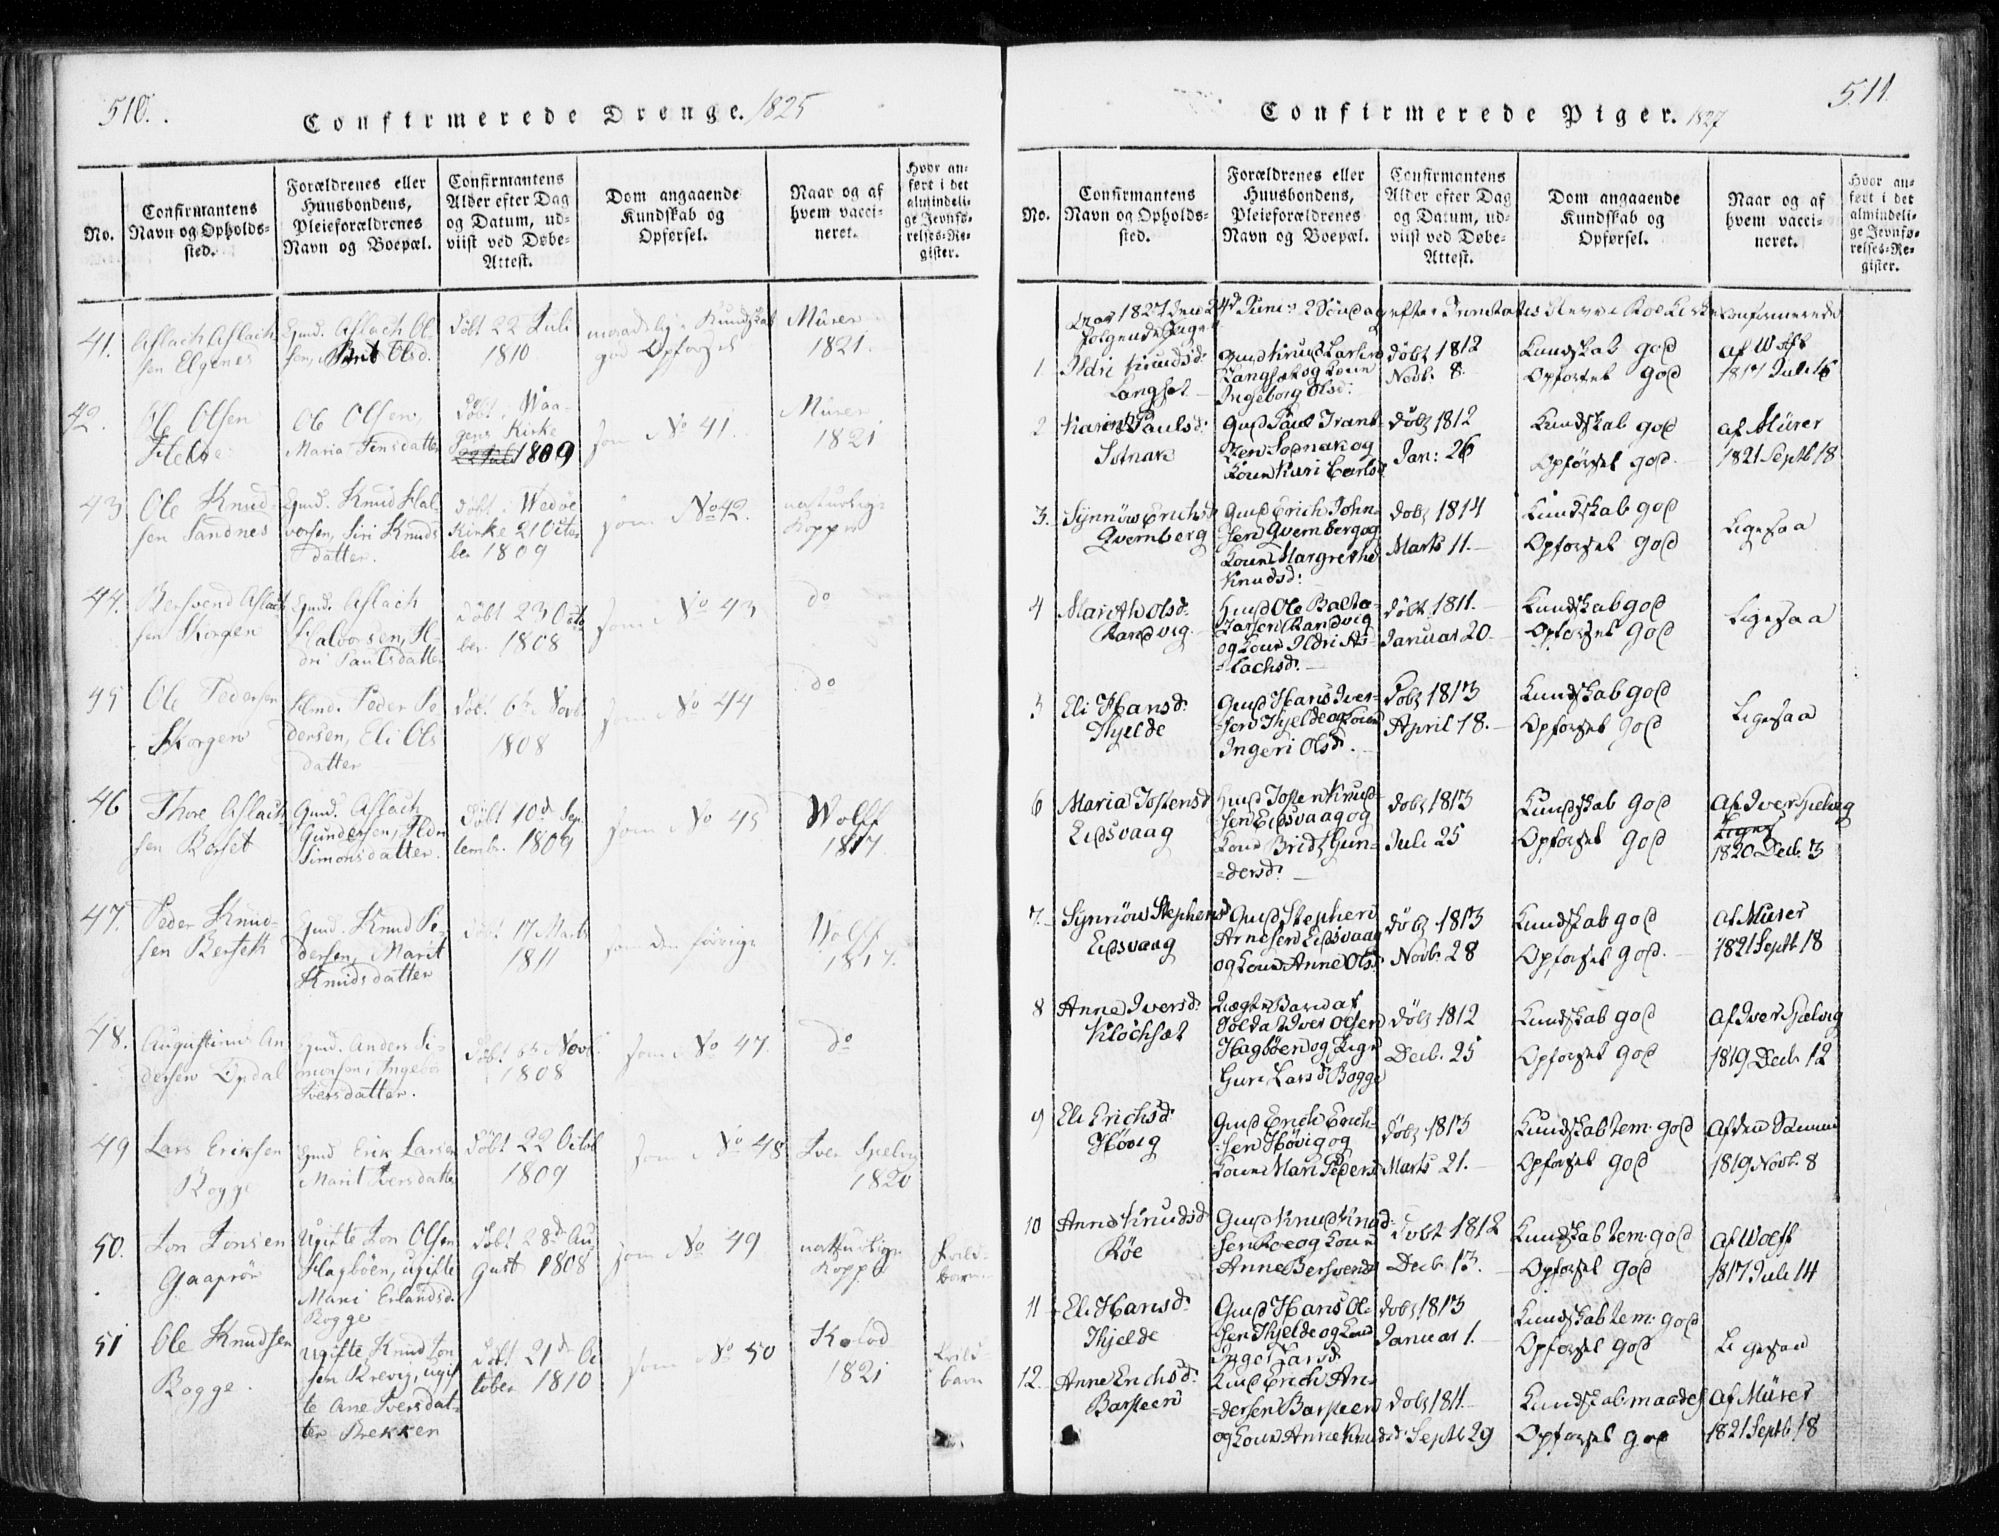 510.
Confirmerede Drenge. 1825
No.
Confirmantens
Navn og Opholds-
sted.
Forældrenes eller
Huusbondens,
Pleieforældrenes
Navn og Boepæl.
Confirmantens
Alder efter Dag
og Datum, ud-
viist ved Døbe-
Attest.
Dom angaaende
Kundskab og
Opførsel.
Naar og af
hvem vacci-
neret.
Hvor an-
ført i det
almindeli-
ge Jevnfø-
relses-Re-
gister.
41.
Aslach Aslach
sen Elgenes
Gmd. Aslach Ol
sen, Brit Olsd.
døbt 22 Juli
1810
maadelig Kundskab
god Opførsel
Mürer
1821.
42.
Ole Olsen
Ole Olsen,
Maria Finsdatter
Døbt i Waa-
gens Kirke
1809
som No 41.
Mürer
1821
43
Ole Knud-
sen Sandnes
Gmd. Knud Hal-
vorsen, Siri Knuds
datter.
døbt i Wedøe
Kirke 21 Octo
ber 1809
som No 42.
naturlige
Kopper
44.
Bersvend Aslach
sen Skorgen
Gmd. Aslach
Halvorsen, Il-
dri Paulsdatter
døbt 23 Octo
ber 1808
som No 43
do
45
Ole Pedersen
Skorgen
Hmd. Peder Pe
dersen, Eli Ols
datter
Døbt 6te Novb.
1808
som No 44
do
46
Thore Aslach
sen Berset
Gmd. Aslach
Gundersen, Ildri
Simonsdatter.
Døbt 10d Sep
tembr. 1809
som No 45
Wolff
1817.
47.
Peder Knud-
sen Berseth
Gmd. Knud Pe-
dersen, Marit
Knudsdatter
døbt 17 Marts
1811
som den forrige
Wolff
1817.
48.
Augustinus An
dersen Opdal
Gmd. Anders Si-
monsen, Ingebor
Iversdatter.
Døbt 6te Novb
1808
som No 47.
do
49
Lars Eriksen
Rogge
Gmd Erik Larsen
Marit Iversdatter
døbt 22 Octob
1809
som No 48
Iver Sjelvig
1820
50.
Jon Jonsen
Gaaprør
Ugifte Jon Olsen
Hagbøen, ugifte
Mari Erlandsd.
Rogge
Døbt 28d Au
gust 1808
som No 49
naturlige
Kopper
51
Ole Knudsen
Rogge.
ugifte Knud Jon
sen Brevig, ugif
te Ane Iversdat-
ter Brekken
Døbt 21de Oc
tober 1810
som No 50
Kolod
1821
511.
Confirmerede Piger. 1827
No.
Confirmantens
Navn og Opholds-
sted.
Forældrenes eller
Huusbondens,
Pleieforældrenes
Navn og Boepæl.
Confirmantens
Alder efter Dag
og Datum, ud-
viist ved Døbe-
Attest.
Dom angaaende
Kundskab og
Opførsel.
Naar og af
hvem vacci-
neret.
Hvor an-
ført i det
almindeli-
ge Jevnfø-
relses-Re-
gister.
Aar 1827 den 24d Juni: 2 Søndag efter Trinitatis blev i Røe Kirke confirmerede
følgende Piger
1
Ildri Knudsd:
Langset
Gmd Knud Larsen
Langset og Kone
Ingeborg Olsd:
Døbt 1812
Novb. 8.
Kundskab god
Opførsel god
af Wolff
1817 Juli 16
2
Karen Paulsd:
Solnak
Gmd Paul Trand-
sen Solnak og
Kone Kari Carlsd
Døbt 1812
Jan: 26
Kundskab god
Opførsel god
af Mürer
1821 Septb 18
3.
Synnøw Erichsd
Qvernberg
Gmd Erich John-
sen Qvernberg og
Kone Margrethe
Knudsd:
Døbt 1814
Marts 11.
Kundskab god
Opførsel god
Ligesaa
4
Marith Olsd.
Randvig
Husmd Ole Balta-
zarsen Randvig
og Kone Ildri As-
=lachsd.
Døbt 1811.
Januar 20.
Kundskab god
Opførsel god
Ligesaa
5
Eli Hansd.
Thjelde
Gmd Hans Iver-
sen Thjelde og Kone
Ingeri Olsd.
Døbt 1813
April 18.
Kundskab god
Opførsel god
Ligesaa
6
Maria Jostensd
Eidsvaag
Husmd Josten Knud-
sen Eidsvaag og
Kone Brid Gun-
=dersd:
Døbt 1813
Juli 25
Kundskab god
Opførsel god
Af Iver Sjelvig
1820 Decb. 3
7.
Synnøw Stephensd
Eidsvaag
Gmd Stephen
Arnesen Eidsvaag
og Kone Anne Olsd
Døbt 1813
Novb. 28
Kundskab god
Opførsel god.
af Mürer
1821 Septb 18
8
Anne Iversd.
Klochsæt
Uægte Barn af
Soldat Iver Olsen
Hagbøen og Pigen
Guri Larsd Rogge
Døbt 1812
Decb. 25
Kundskab god
Opførsel god
Af Iver Sjelvig
1819 Decb 12
9
Eli Erichsd.
Høvig
Gmd Erich Erich-
sen Høvig og
Kone Mari Peders
Døbt 1813
Marts 21.
Kundskab tem: god
Opførsel god
Af den Samme
1819 Novb. 8
10
Anne Knudsd
Røe
Gmd Knud Knud-
sen Røe og Kone
Anne Bersvends
Døbt 1812
Decb. 13.
Kundskab tem: god
Opførsel god
Af Wolff
1817 Juli 14
11
Eli Hansd.
Thjelde
Gmd Hans Ol-
sen Thjelde og Kone
Inger Larsd.
Døbt 1813
Januar 1.
Kundskab tem: god
Opførsel god
Ligesaa
12.
Anne Erichsd.
Barsteen
Husmd Erich An-
=dersen Barsteen
og Kone Anne Knudsd
Døbt 1811
Septb 29
Kundskab maadel
Opførsel god
Af Mürer
1821 Septb 18